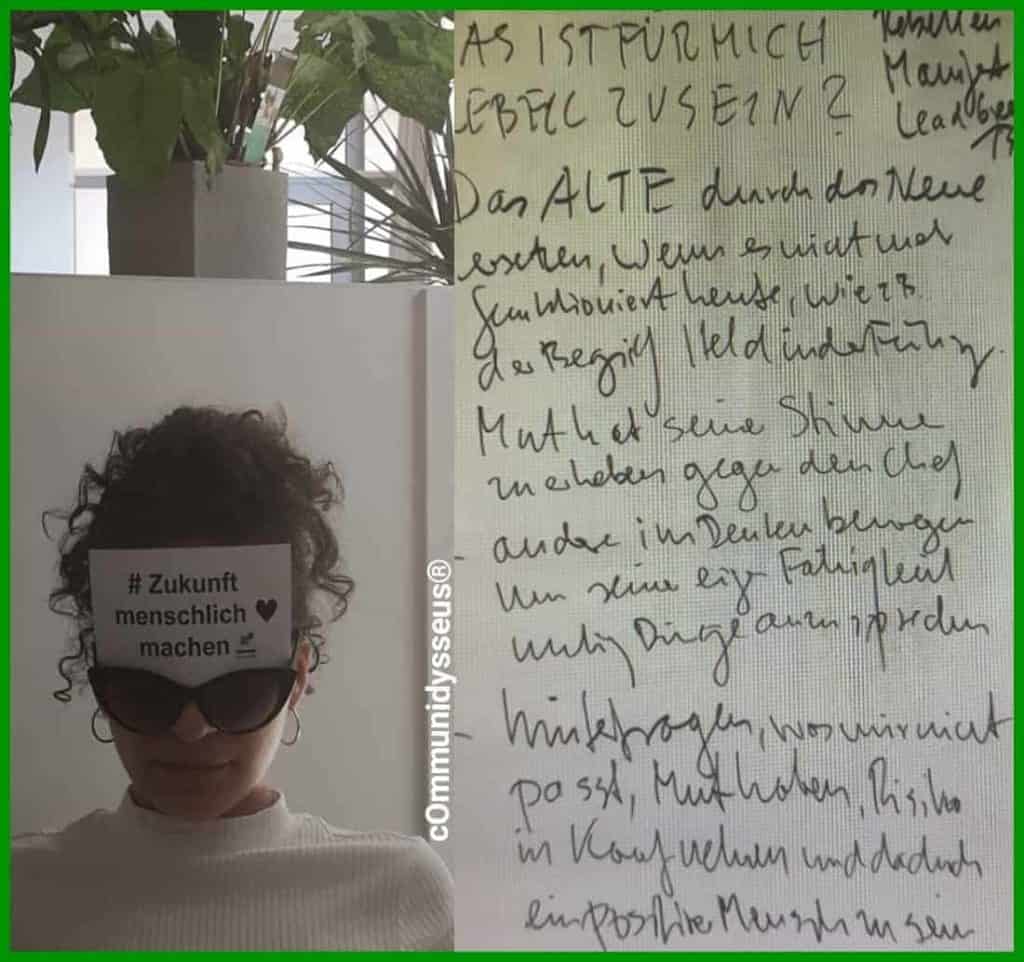 # Zukunft
menschlich ♥
machen
cOmmunidysseus®
AS IST FÜR MICH
EBELL ZU SEIN?
Rebellen
Manifest
Lead
Das ALTE durch das Neue
ersetzen, wenn es nicht mehr
funktioniert heute, wie z.B.
der Begriff Held in der Führung.
Mut hat seine Stimme
zu erheben gegen den Chef
- andere im Denken bewegen
um seine eigene Fähigkeit
mutig Dinge anzusprechen
- hinterfragen, was mir nicht
passt, Mut haben, Risiko
in Kauf nehmen und dadurch
ein positive Mensch zu sein